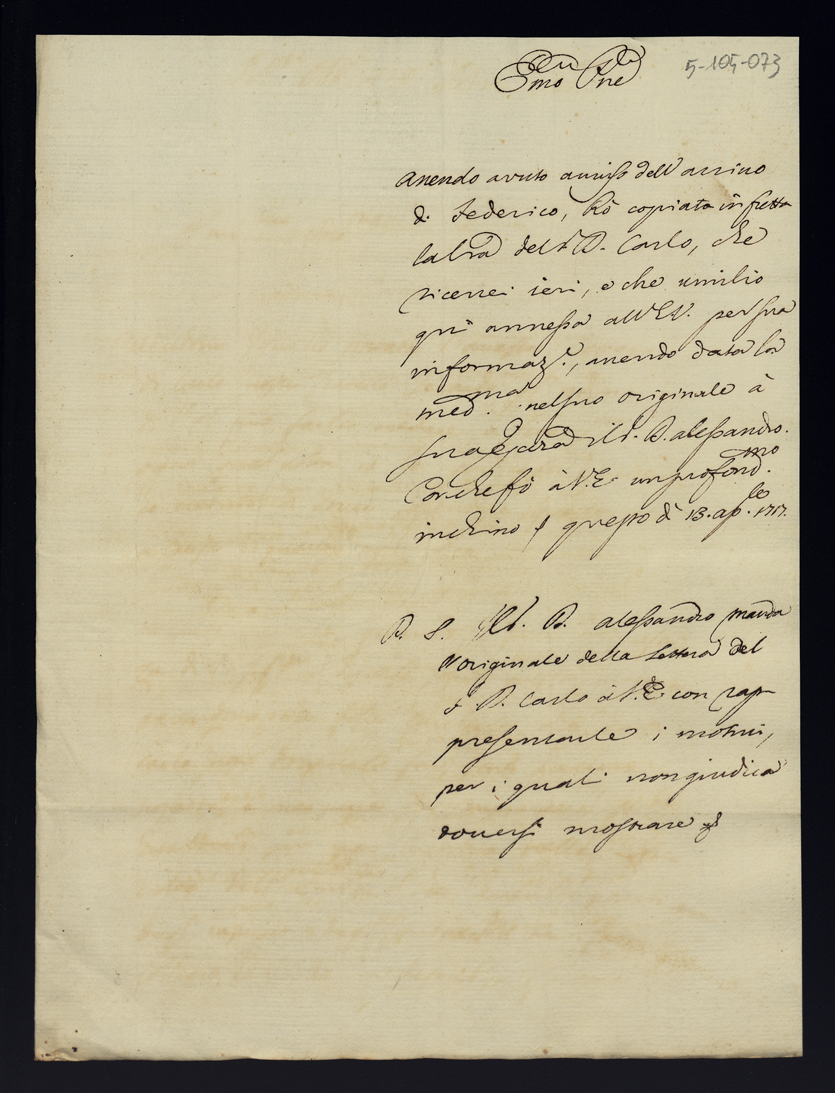 Em̃o Pñe
5-105-073
Avendo avuto avviso dell'arrivo
di Federico, hò copiata in fretta
la lrã del S.r D. Carlo, che
ricevei ieri, e che umilio
quì annessa all'E.V. per sua
informaz.e, avendo data la
med.ma nel suo originale à
il S. D. Alessandro.
Con che fò à V.E. un profond.mo
inchino questo dì 13. ap.le 1717.
P. S. Il S. D. Alessandro manda
l'originale della lettera del
S. D. Carlo à V.E. con rap-
presentarle i motivi,
per i quali non giudica
doversi mostrare